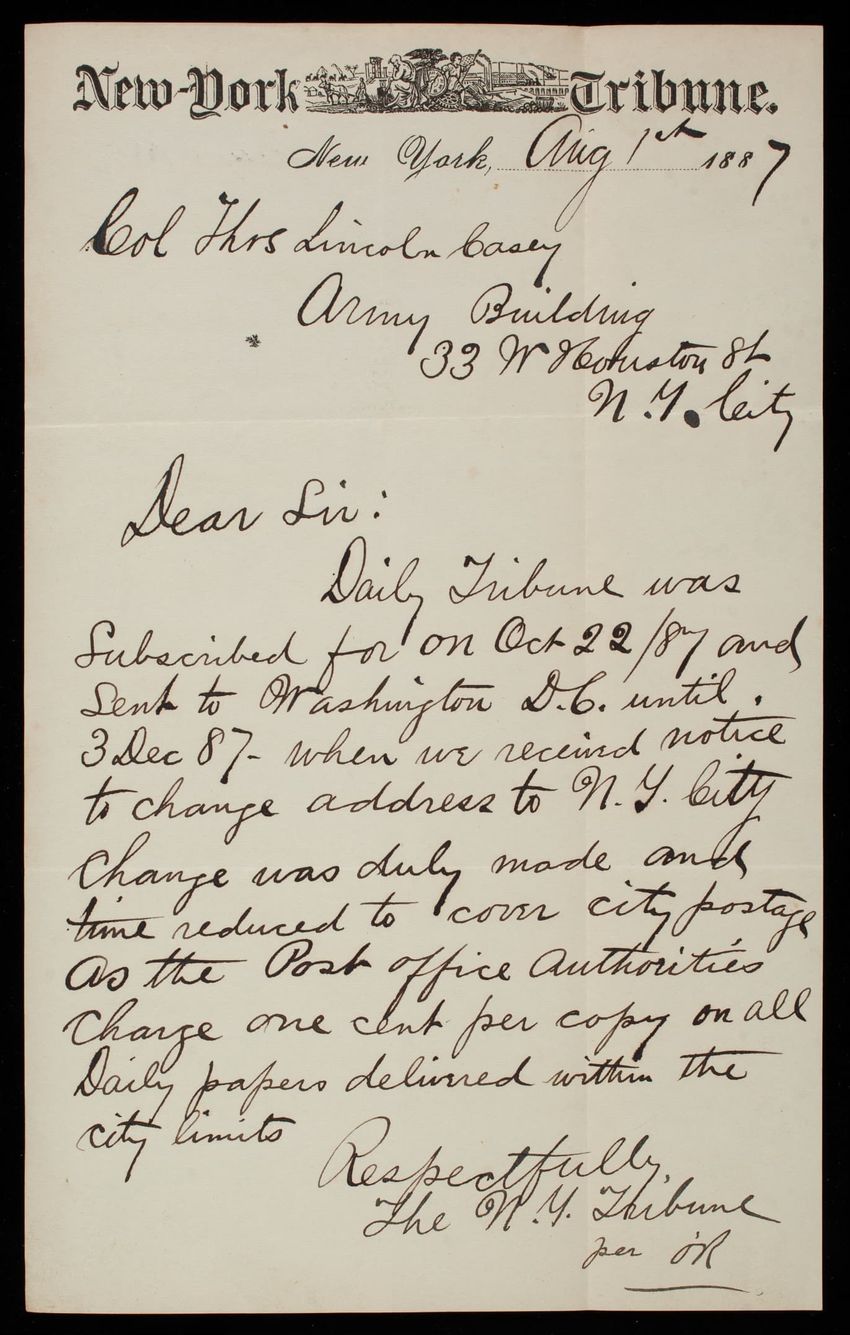 New-York Tribune.
New York, Aug 1st 1887
Col Thos Lincoln Casey
Army Building
33 W Houston St
N.Y. City
Dear Sir:
Daily Tribune was
Subscribed for on Oct 22/87 and
Sent to Washington D.C. until.
3 Dec 87- when we received notice
to change address to N.Y. City
Change was duly made and
time reduced to cover city postage
As the Post office Authorities
Charge one cent per copy on all
Daily papers delivered within the
city limits
Respectfully,
The N.Y. Tribune
per